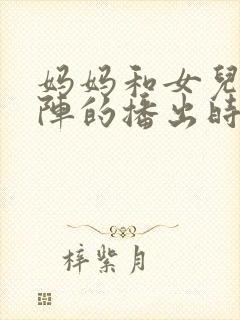 妈妈和女兒
陣的播出時
梓紫月